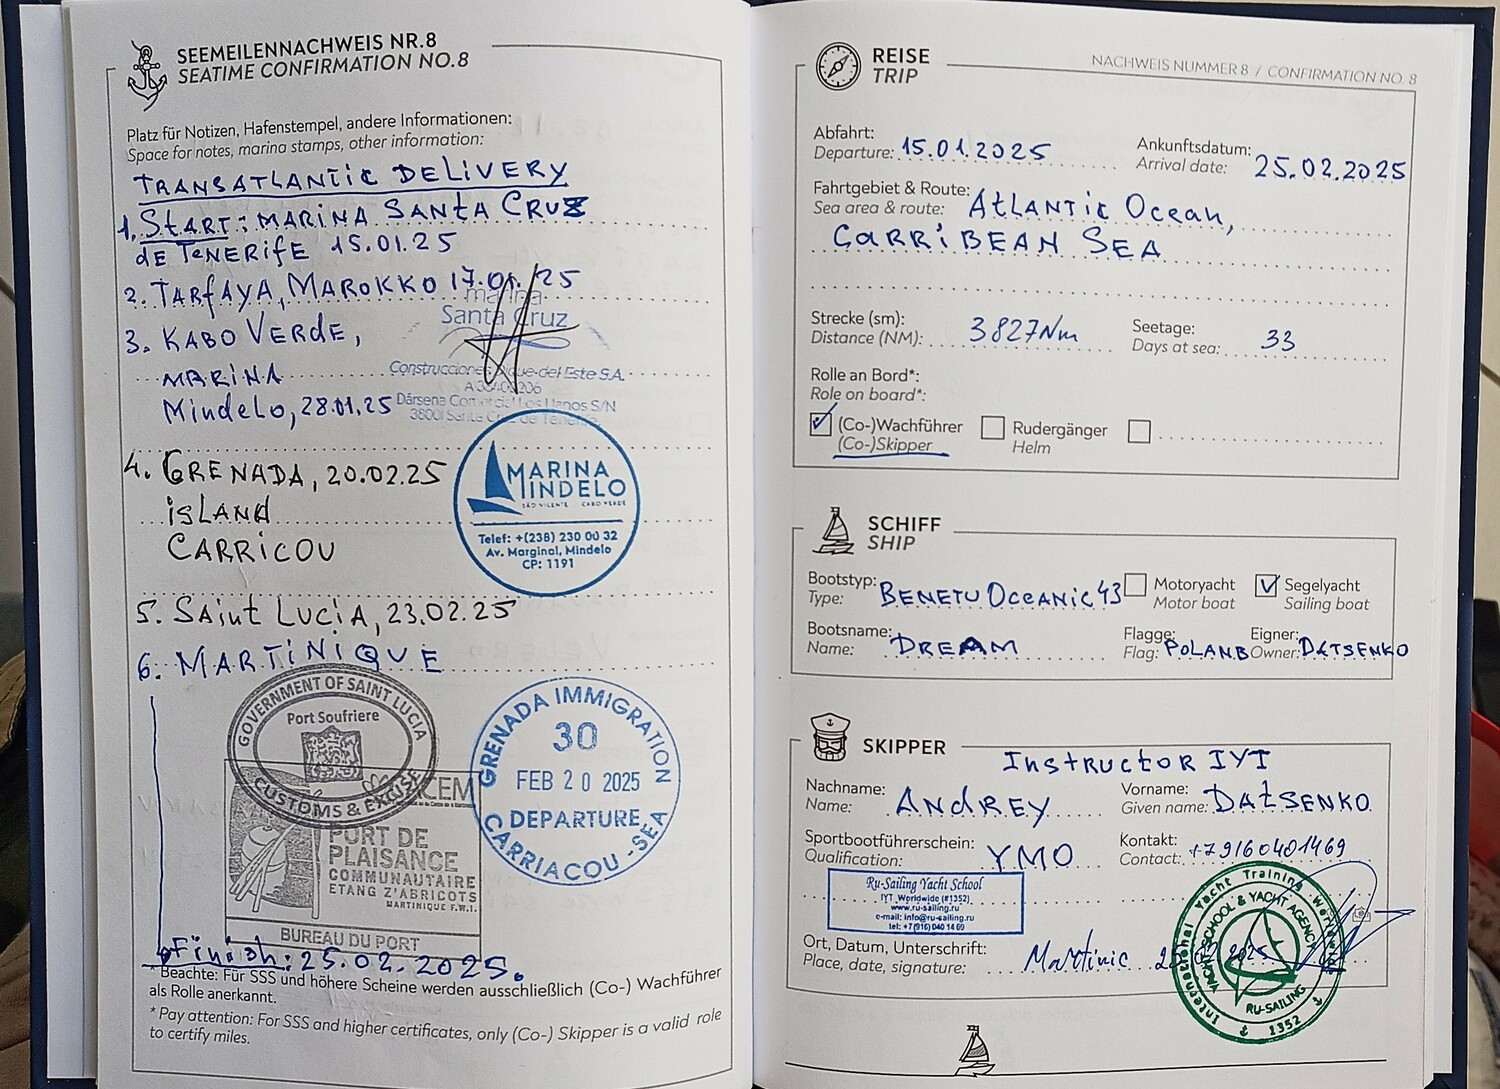 SEEMEILENNACHWEIS NR.8
SEATIME CONFIRMATION NO.8
Platz für Notizen, Hafenstempel, andere Informationen:
Space for notes, marina stamps, other information:
TRANSATLANTIC DELIVERY
1. START: MARINA SANTA CRUZ
DE TENERIFE 15.01.25
2. TARFAYA, MAROKKO 17.01.25
marina
Santa Cruz
3. KABO VERDE,
MARINA
Mindelo, 28.01.25
Dársena Comercial Los Llanos S/N
38001 Santa Cruz de Tenerife
4. GRENADA, 20.02.25
ISLAND
CARRICOU
MARINA
MINDELO
SÃO VICENTE CABO VERDE
Telef: +(238) 230 00 32
Av. Marginal, Mindelo
CP: 1191
5. Saint Lucia, 23.02.25
6. MARTINIQUE
GOVERNMENT OF SAINT LUCIA
Port Soufriere
CUSTOMS & EXCISE
GRENADA IMMIGRATION
30
FEB 20 2025
DEPARTURE
CARRIACOU - SEA
CACEM
PORT DE
PLAISANCE
COMMUNAUTAIRE
ETANG Z'ABRICOTS
MARTINIQUE F.W.I.
BUREAU DU PORT
Finish: 25.02.2025.
* Beachte: Für SSS und höhere Scheine werden ausschließlich (Co-) Wachführer
als Rolle anerkannt.
* Pay attention: For SSS and higher certificates, only (Co-) Skipper is a valid role
to certify miles.
REISE
TRIP
NACHWEIS NUMMER 8 / CONFIRMATION NO. 8
Abfahrt:
Departure: 15.01.2025
Ankunftsdatum:
Arrival date: 25.02.2025
Fahrtgebiet & Route:
Sea area & route: Atlantic Ocean,
CARRIBEAN SEA
Strecke (sm):
Distance (NM): 3827Nm
Seetage:
Days at sea: 33
Rolle an Bord*:
Role on board*:
(Co-)Wachführer
(Co-)Skipper
Rudergänger
Helm
SCHIFF
SHIP
Bootstyp:
Type: BENETU Oceanic 43
Motoryacht
Motor boat
Segelyacht
Sailing boat
Bootsname:
Name: DREAM
Flagge:
Flag: POLAND
Eigner:
Owner: DATSENKO
SKIPPER
Instructor IYT
Nachname:
Name: ANDREY
Vorname:
Given name: DATSENKO
Sportbootführerschein:
Qualification: YMO
Kontakt:
Contact: +79160401469
Ru-Sailing Yacht School
IYT Worldwide (#1352)
www.ru-sailing.ru
e-mail: info@ru-sailing.ru
tel: +7(916) 040 14 69
Ort, Datum, Unterschrift:
Place, date, signature: Martinic 25.02.2025
International Yacht Training Worldwide
YACHT SCHOOL & YACHT AGENCY
RU-SAILING
1352